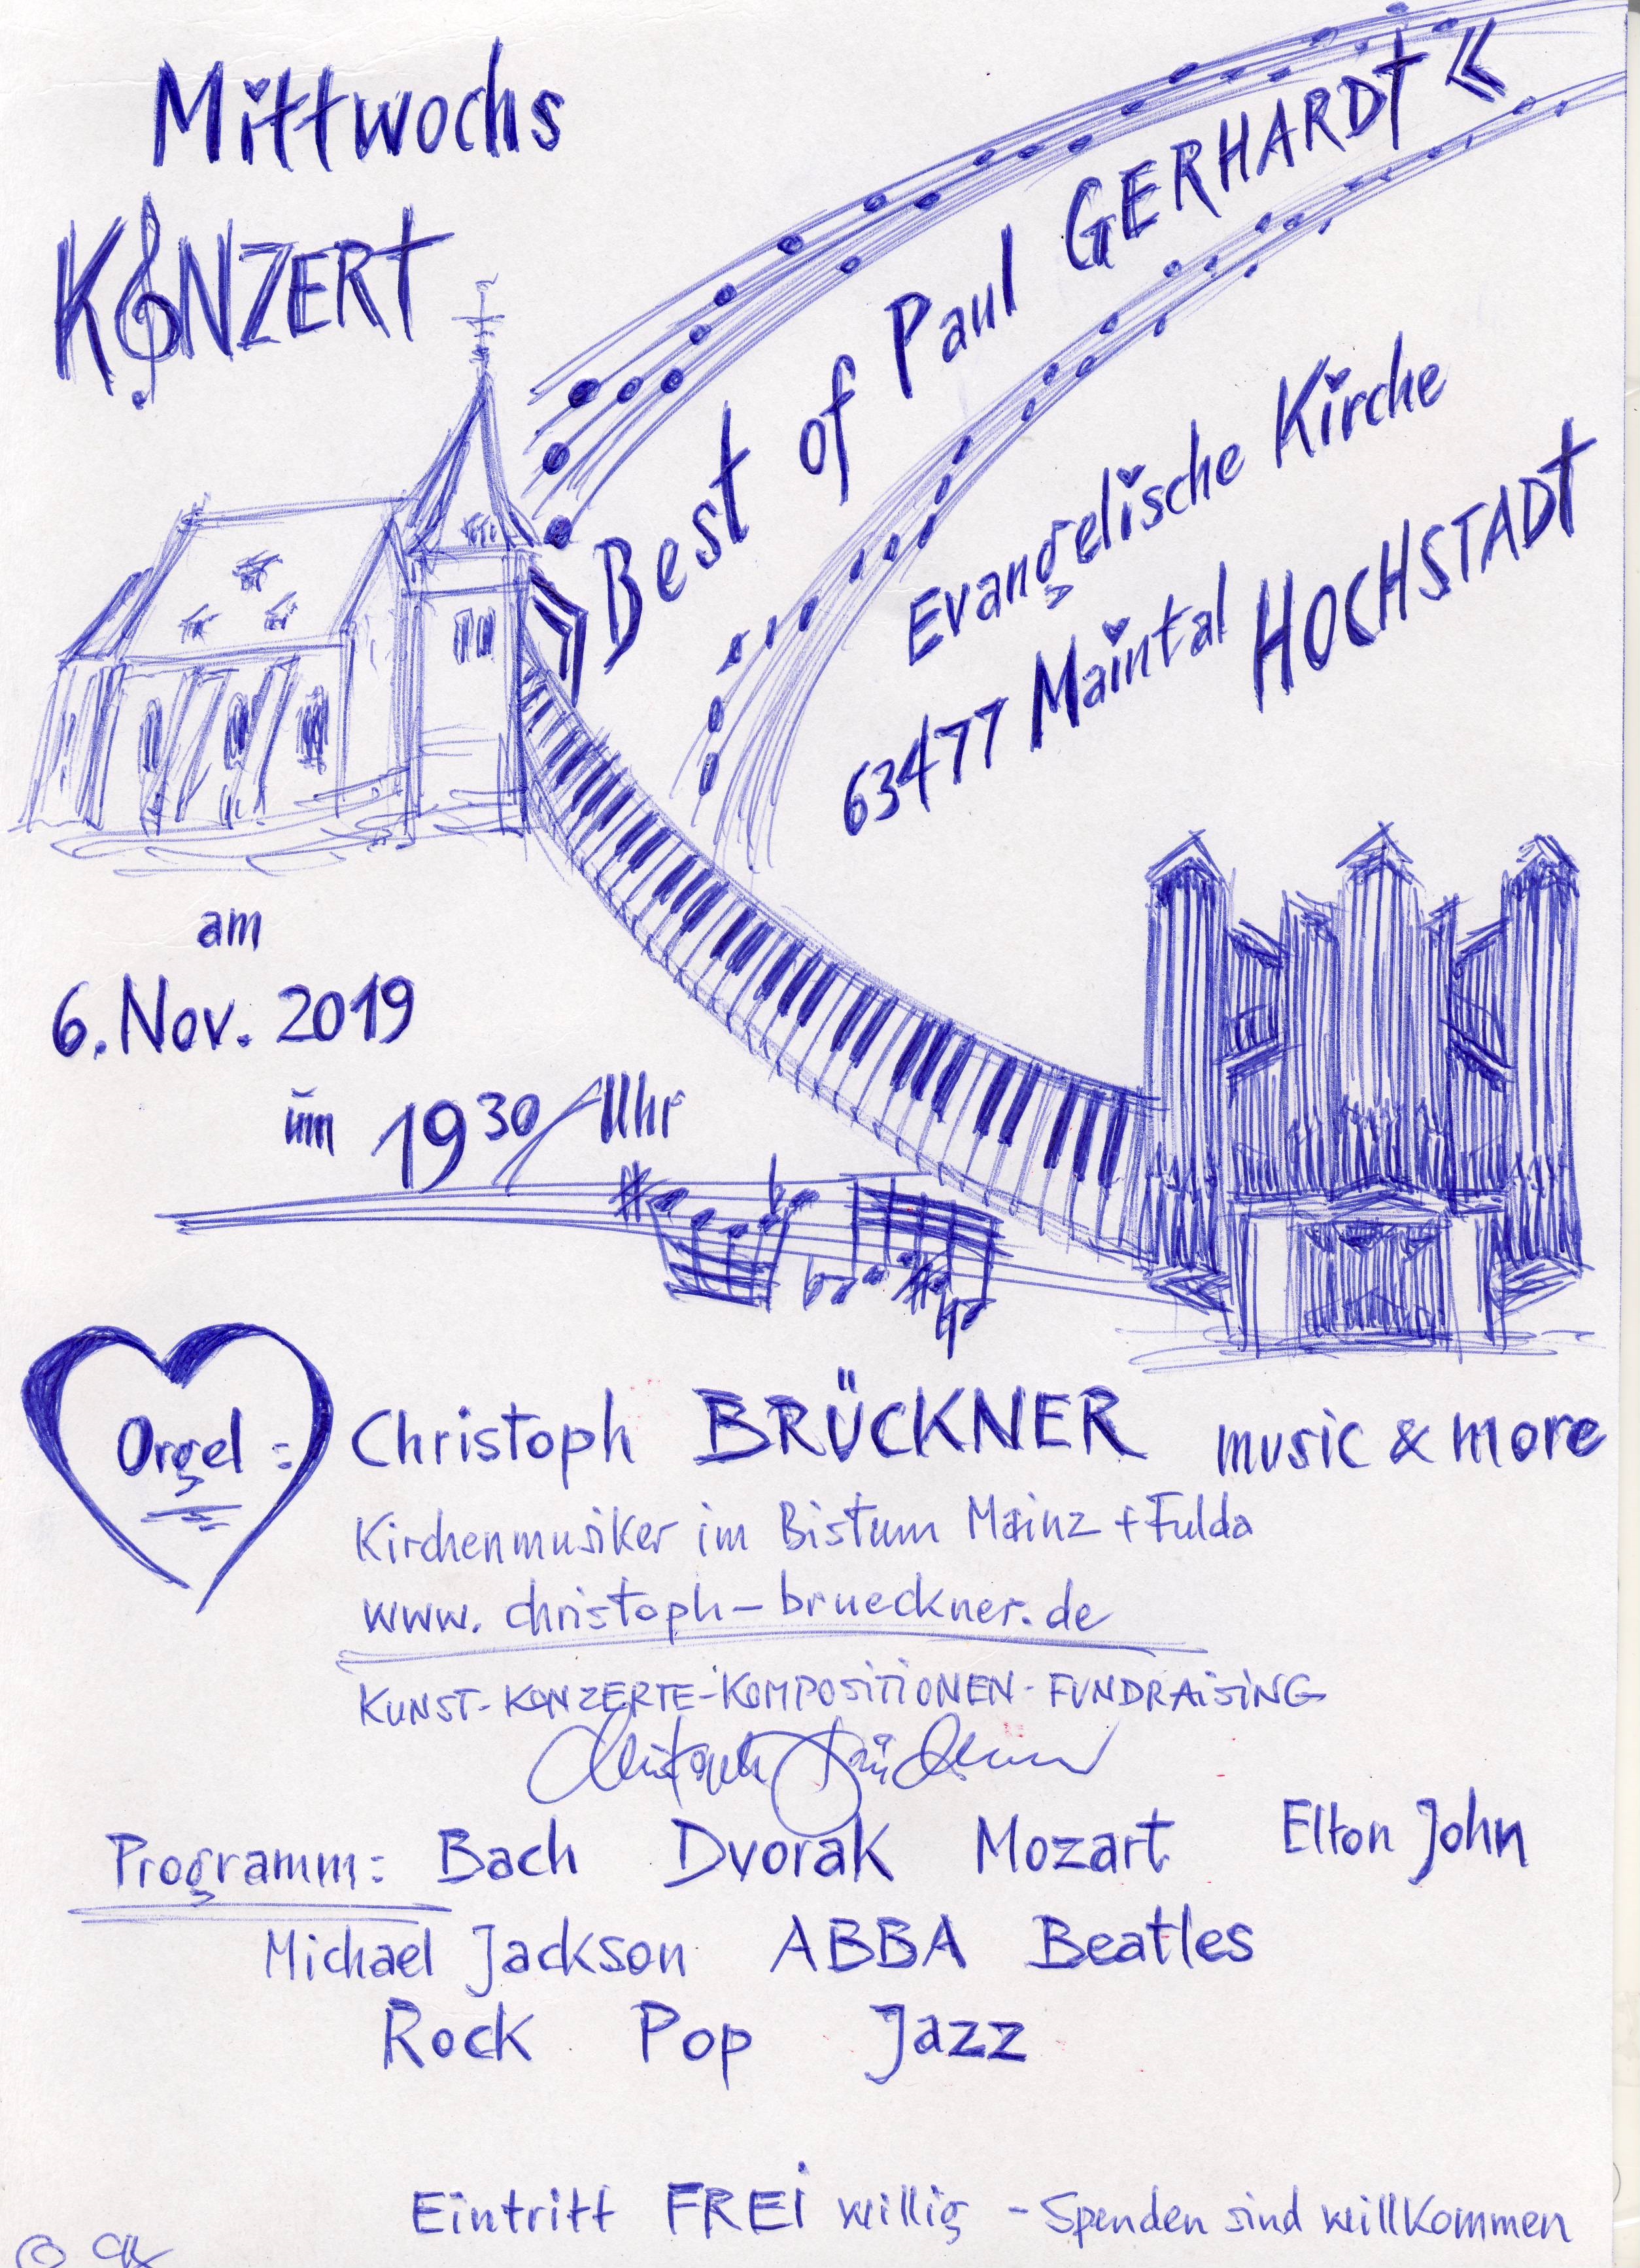 Mittwochs
KONZERT
» Best of Paul GERHARDT «
Evangelische Kirche
63477 Maintal HOCHSTADT
am
6. Nov. 2019
um 19 30 / Uhr
Orgel : Christoph BRÜCKNER music & more
Kirchenmusiker im Bistum Mainz + Fulda
www. christoph-brueckner.de
KUNST-KONZERTE-KOMPOSITIONEN-FUNDRAISING
Christoph Brückner
Programm: Bach Dvorak Mozart Elton John
Michael Jackson ABBA Beatles
Rock Pop Jazz
Eintritt FREi willig - Spenden sind willkommen
©